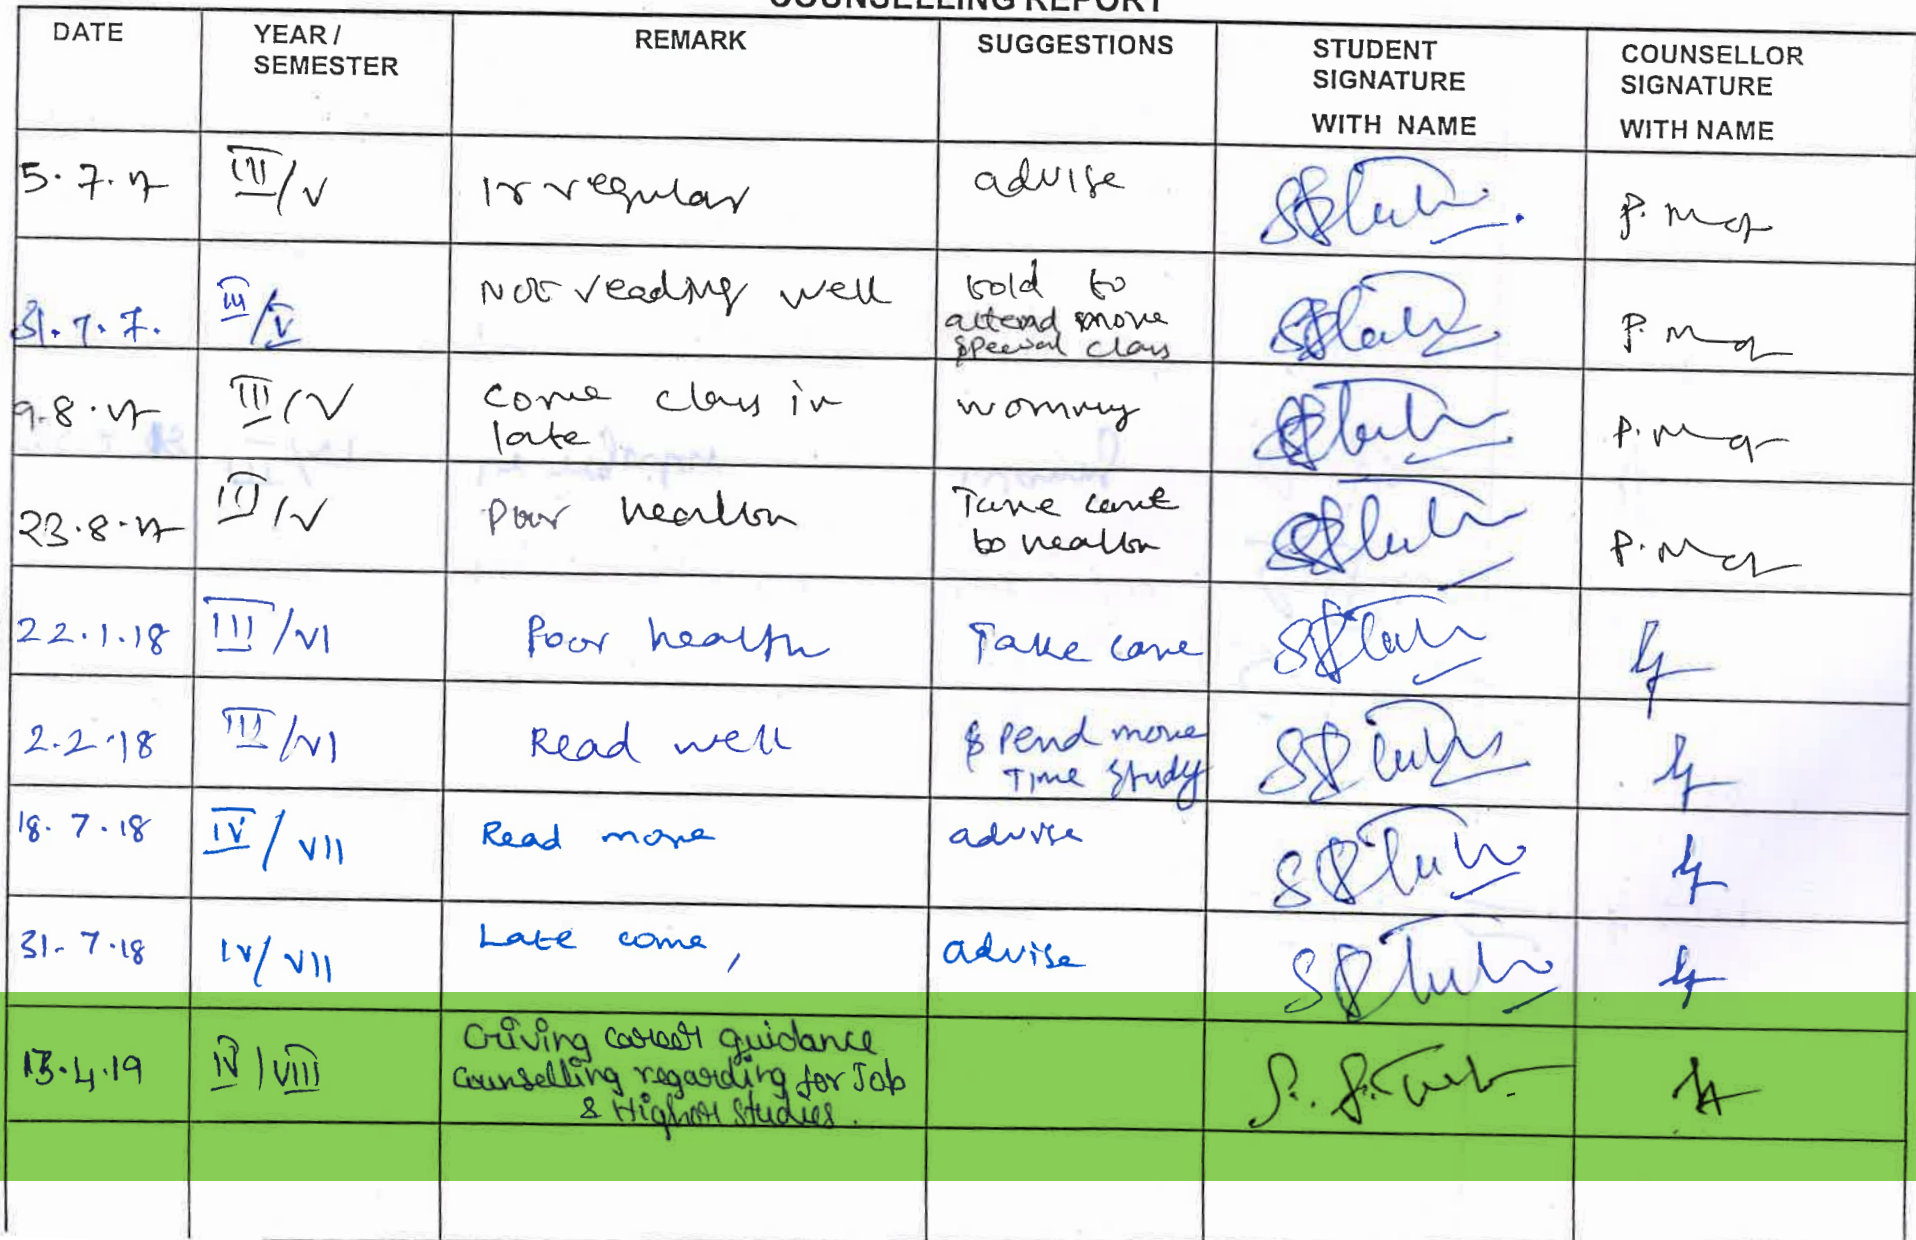 COUNSELLING REPORT
DATE YEAR / SEMESTER REMARK SUGGESTIONS STUDENT SIGNATURE WITH NAME COUNSELLOR SIGNATURE WITH NAME
5.7.17 III/V Irregular advise
31.7.7. III/V Not reading well told to
attend more
special class
9.8.17 III/V come class in
late
23.8.17 III/V Poor health Take care
to health
22.1.18 III/VI Poor health Take care
2.2.18 III/VI Read well spend more
Time study
18.7.18 IV/VII Read more advise
31.7.18 IV/VII Late come, advise
13.4.19 IV/VIII Giving career guidance
counselling regarding for Job
& Higher Studies.